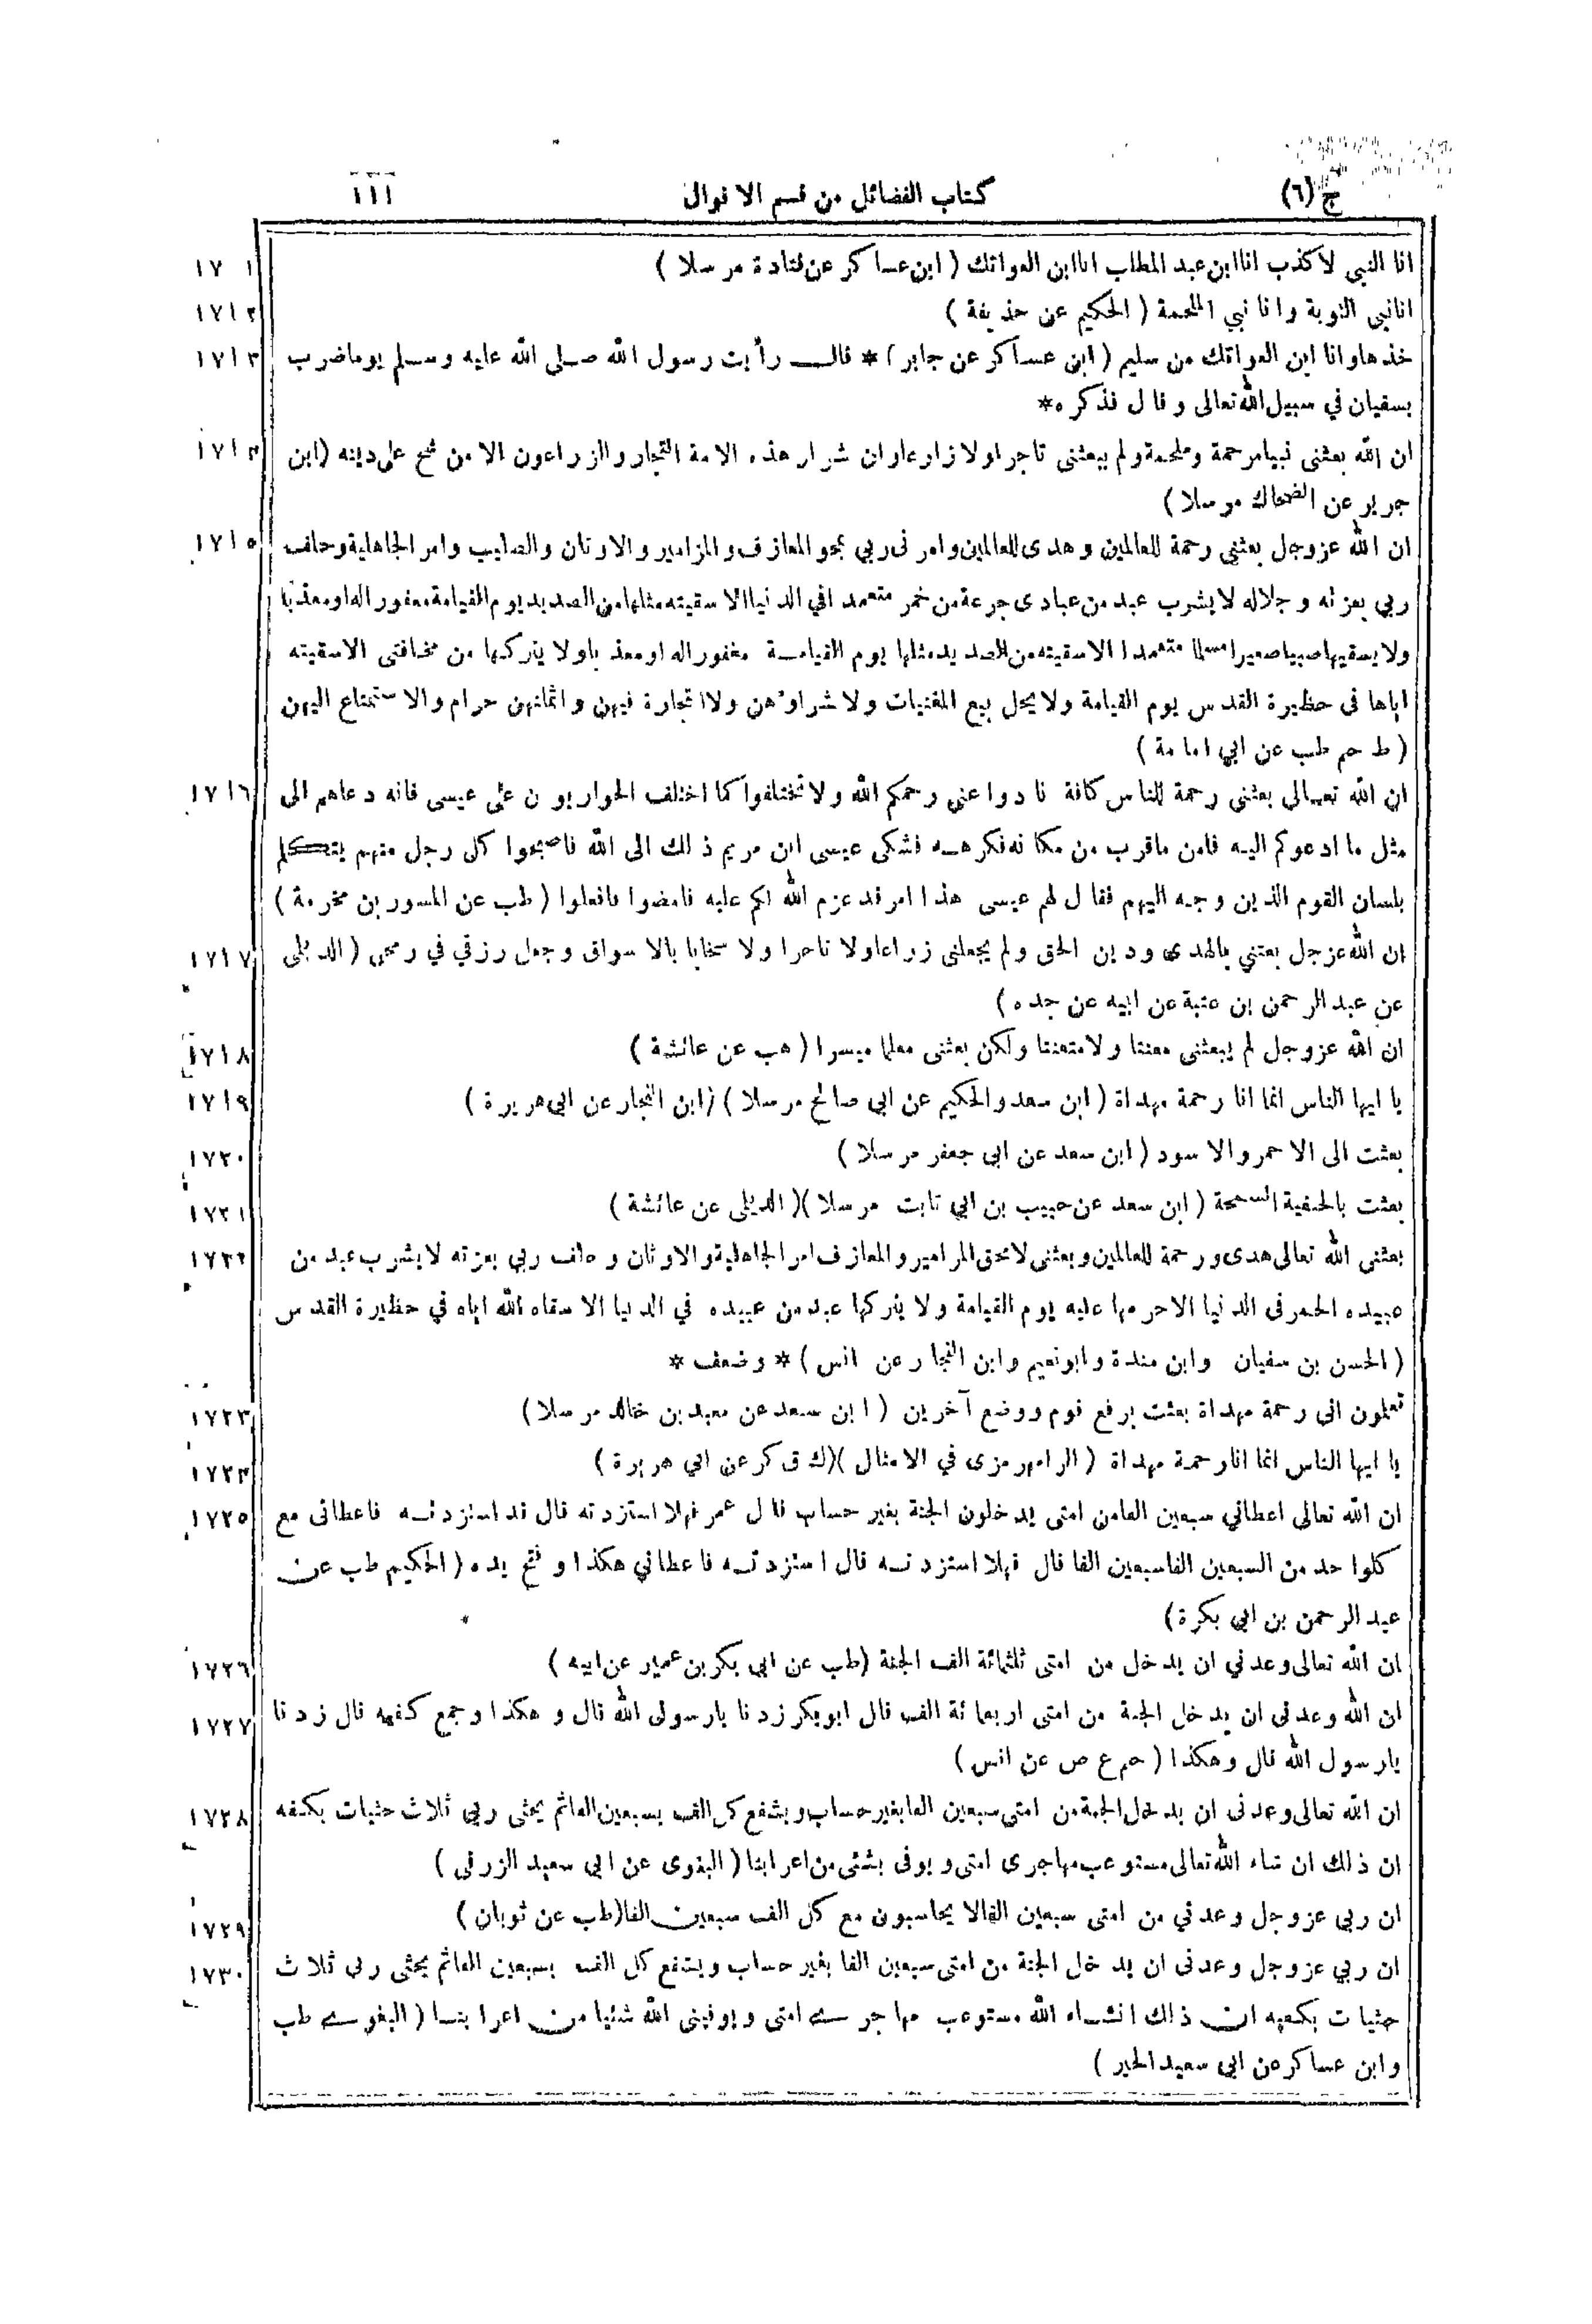 ج (٦) كتاب الفضائل من قسم الاقوال ١١١
انا النبي لا كذب انا ابن عبد المطلب انا ابن العواتك ( ابن عساكر عن قتادة مرسلا ) ١٧١١
انا نبي التوبة وانا نبي الملحمة ( الحكيم عن حذيفة ) ١٧١٢
خذها وانا ابن العواتك من سليم ( ابن عساكر عن جابر ) * قال رأيت رسول الله صلى الله عليه وسلم يوما ضرب ١٧١٣
بسفيان في سبيل الله تعالى وقال فذكره *
ان الله بعثنى نبيا مرحمة وملحمة ولم يبعثنى تاجرا ولا زارعا وان شرار هذه الامة التجار والزراعون الا من شح على دينه ( ابن ١٧١٤
جرير عن الضحاك مرسلا )
ان الله عز وجل بعثنى رحمة للعالمين وهدى للعالمين وامرنى ربي بمحو المعازف والمزامير والاوثان والصليب وامر الجاهلية وحلف ١٧١٥
ربي بعزته وجلاله لا يشرب عبد من عبادى جرعة من خمر متعمدا في الدنيا الا سقيته مثلها من الصديد يوم القيامة مغفورا له او معذبا
ولا يسقيها صبيا صغيرا مسلما متعمدا الا سقيته من الصديد مثلها يوم القيامة مغفورا له او معذبا ولا يتركها من مخافتى الا سقيته
اياها فى حظيرة القدس يوم القيامة ولا يحل بيع المغنيات ولا شراؤهن ولا تجارة فيهن واثمانهن حرام والاستمتاع اليهن
( ط حم طب عن ابي امامة )
ان الله تعالى بعثنى رحمة للناس كافة فادوا عنى رحمكم الله ولا تختلفوا كما اختلف الحواريون على عيسى فانه دعاهم الى ١٧١٦
مثل ما ادعوكم اليه فامن ما قرب من مكانه فكرهه فشكى عيسى ابن مريم ذلك الى الله فاصبحوا كل رجل منهم يتكلم
بلسان القوم الذين وجه اليهم فقال لهم عيسى هذا امر قد عزم الله لكم عليه فامضوا فافعلوا ( طب عن المسور بن مخرمة )
ان الله عز جل بعثني بالهدى ودين الحق ولم يجعلنى زراعا ولا تاجرا ولا سخابا بالاسواق وجعل رزقي في رمحى ( الديلمى ١٧١٧
عن عبد الرحمن بن عتبة عن ابيه عن جده )
ان الله عز وجل لم يبعثنى معنتا ولا متعنتا ولكن بعثنى معلما ميسرا ( هب عن عائشة ) ١٧١٨
يا ايها الناس انما انا رحمة مهداة ( ابن سعد والحكيم عن ابي صالح مرسلا ) ( ابن النجار عن ابي هريرة ) ١٧١٩
بعثت الى الاحمر والاسود ( ابن سعد عن ابي جعفر مرسلا ) ١٧٢٠
بعثت بالحنفية السمحة ( ابن سعد عن حبيب بن ابي ثابت مرسلا )( الديلمى عن عائشة ) ١٧٢١
بعثنى الله تعالى هدى ورحمة للعالمين وبعثنى لامحق المزامير والمعازف امر الجاهلية والاوثان وحلف ربي بعزته لا يشرب عبد من ١٧٢٢
عبيده الخمر فى الدنيا الا حرمها عليه يوم القيامة ولا يتركها عبد من عبيده في الدنيا الا سقاه الله اياه في حظيرة القدس
( الحسن بن سفيان وابن مندة وابو نعيم وابن النجار عن انس ) * وضعف *
تعلمون انى رحمة مهداة بعثت برفع قوم ووضع آخرين ( ابن سعد عن معبد بن خالد مرسلا ) ١٧٢٣
يا ايها الناس انما انا رحمة مهداة ( الرامهرمزى في الامثال )( ك ق كر عن ابي هريرة ) ١٧٢٤
ان الله تعالى اعطاني سبعين الفا من امتى يدخلون الجنة بغير حساب قال عمر فهلا استزدته قال قد استزدته فاعطانى مع ١٧٢٥
كلواحد من السبعين الفا سبعين الفا قال فهلا استزدته قال استزدته فاعطاني هكذا وفتح يده ( الحكيم طب عن
عبد الرحمن بن ابي بكرة )
ان الله تعالى وعدني ان يدخل من امتى ثلثمائة الف الجنة ( طب عن ابي بكر بن عمير عن ابيه ) ١٧٢٦
ان الله وعدنى ان يدخل الجنة من امتى اربعمائة الف قال ابو بكر زدنا يا رسول الله قال وهكذا وجمع كفيه قال زدنا ١٧٢٧
يا رسول الله قال وهكذا ( حم ع ص عن انس )
ان الله تعالى وعدنى ان يدخل الجنة من امتى سبعين الفا بغير حساب ويشفع كل الف بسبعين الفا ثم يحثى ربي ثلاث حثيات بكفه ١٧٢٨
ان ذلك ان شاء الله تعالى مستوعب مهاجرى امتى ويوفى بشئى من اعرابنا ( البغوى عن ابي سعيد الزرقي )
ان ربي عز وجل وعدني من امتى سبعين الفا لا يحاسبون مع كل الف سبعين الفا ( طب عن ثوبان ) ١٧٢٩
ان ربي عز وجل وعدنى ان يدخل الجنة من امتى سبعين الفا بغير حساب ويشفع كل الف بسبعين الفا ثم يحثى ربي ثلاث ١٧٣٠
حثيات بكفيه ان ذلك انشاء الله مستوعب مهاجرے امتى ويوفينى الله شئيا من اعرابنا ( البغوے طب
وابن عساكر عن ابي سعيد الخير )